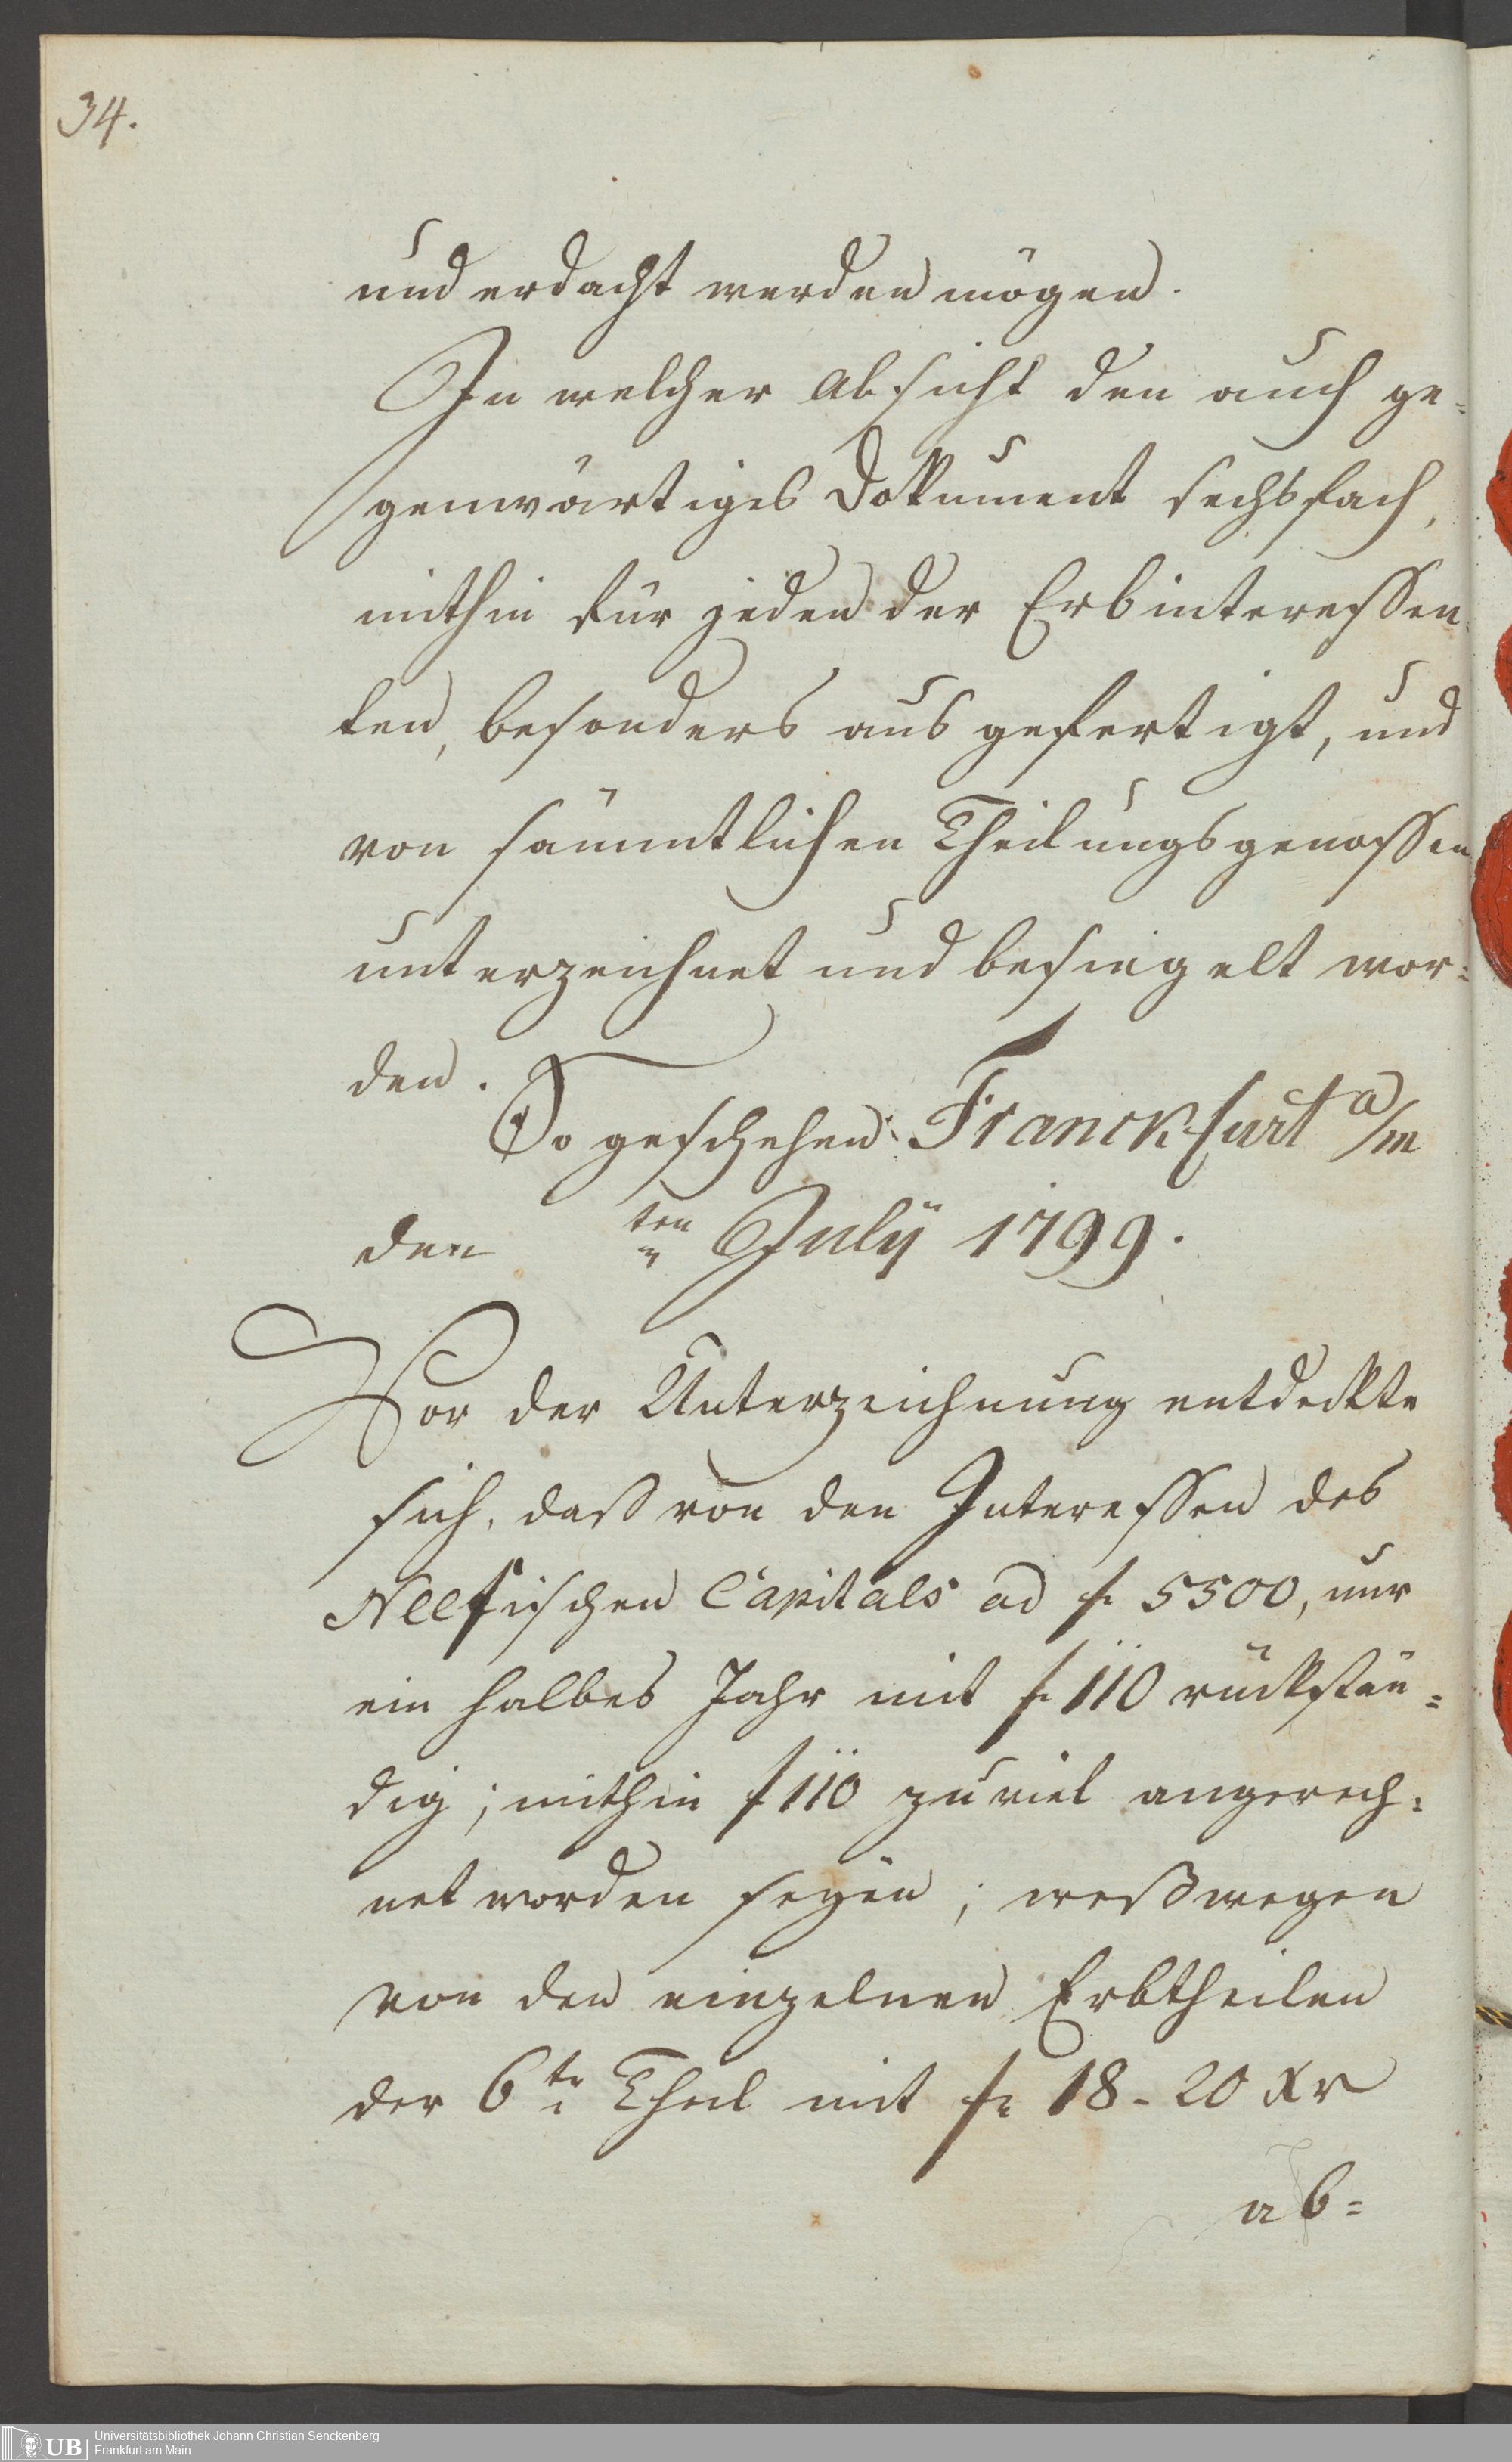 34.
und erdacht werden mögen.
In welcher Absicht den auch ge=
genwärtiges Dokument sechsfach,
mithin für jeden der Erbinteressen
ten, besonders ausgefertigt, und
von sämmtlichen Theilungsgenossen
unterzeichnet und besiegelt wor=
den.
So geschehen Franckfurt a/m
den ten July 1799.
Vor der Unterzeichnung entdeckte
sich, daß von den Interessen des
Neefischen Capitals ad f. 5500, nur
ein halbes Jahr mit f. 110 rückstän=
dig; mithin f 110 zuviel angerech=
net worden seyen; weßwegen
von den einzelnen Erbtheilen
der 6te Theil mit f. 18 - 20 Xr
ab=
UB
Universitätsbibliothek Johann Christian Senckenberg
Frankfurt am Main